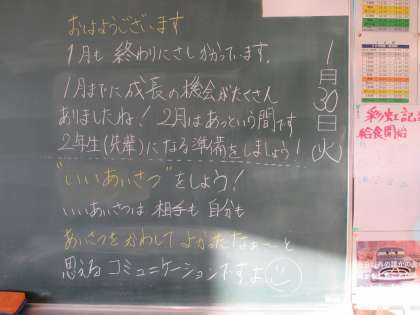 おはようございます
1月も終わりにさしかかっています。
1月までに成長の機会がたくさん
ありましたね！2月はあっという間です
2年生(先輩)になる準備をしましょう！
"いいあいさつ"をしよう！
いいあいさつは 相手も 自分も
あいさつをかわして よかったなぁ〜と
思える コミュニケーションですよ
1月30日(火)
彩虹記
給食開始